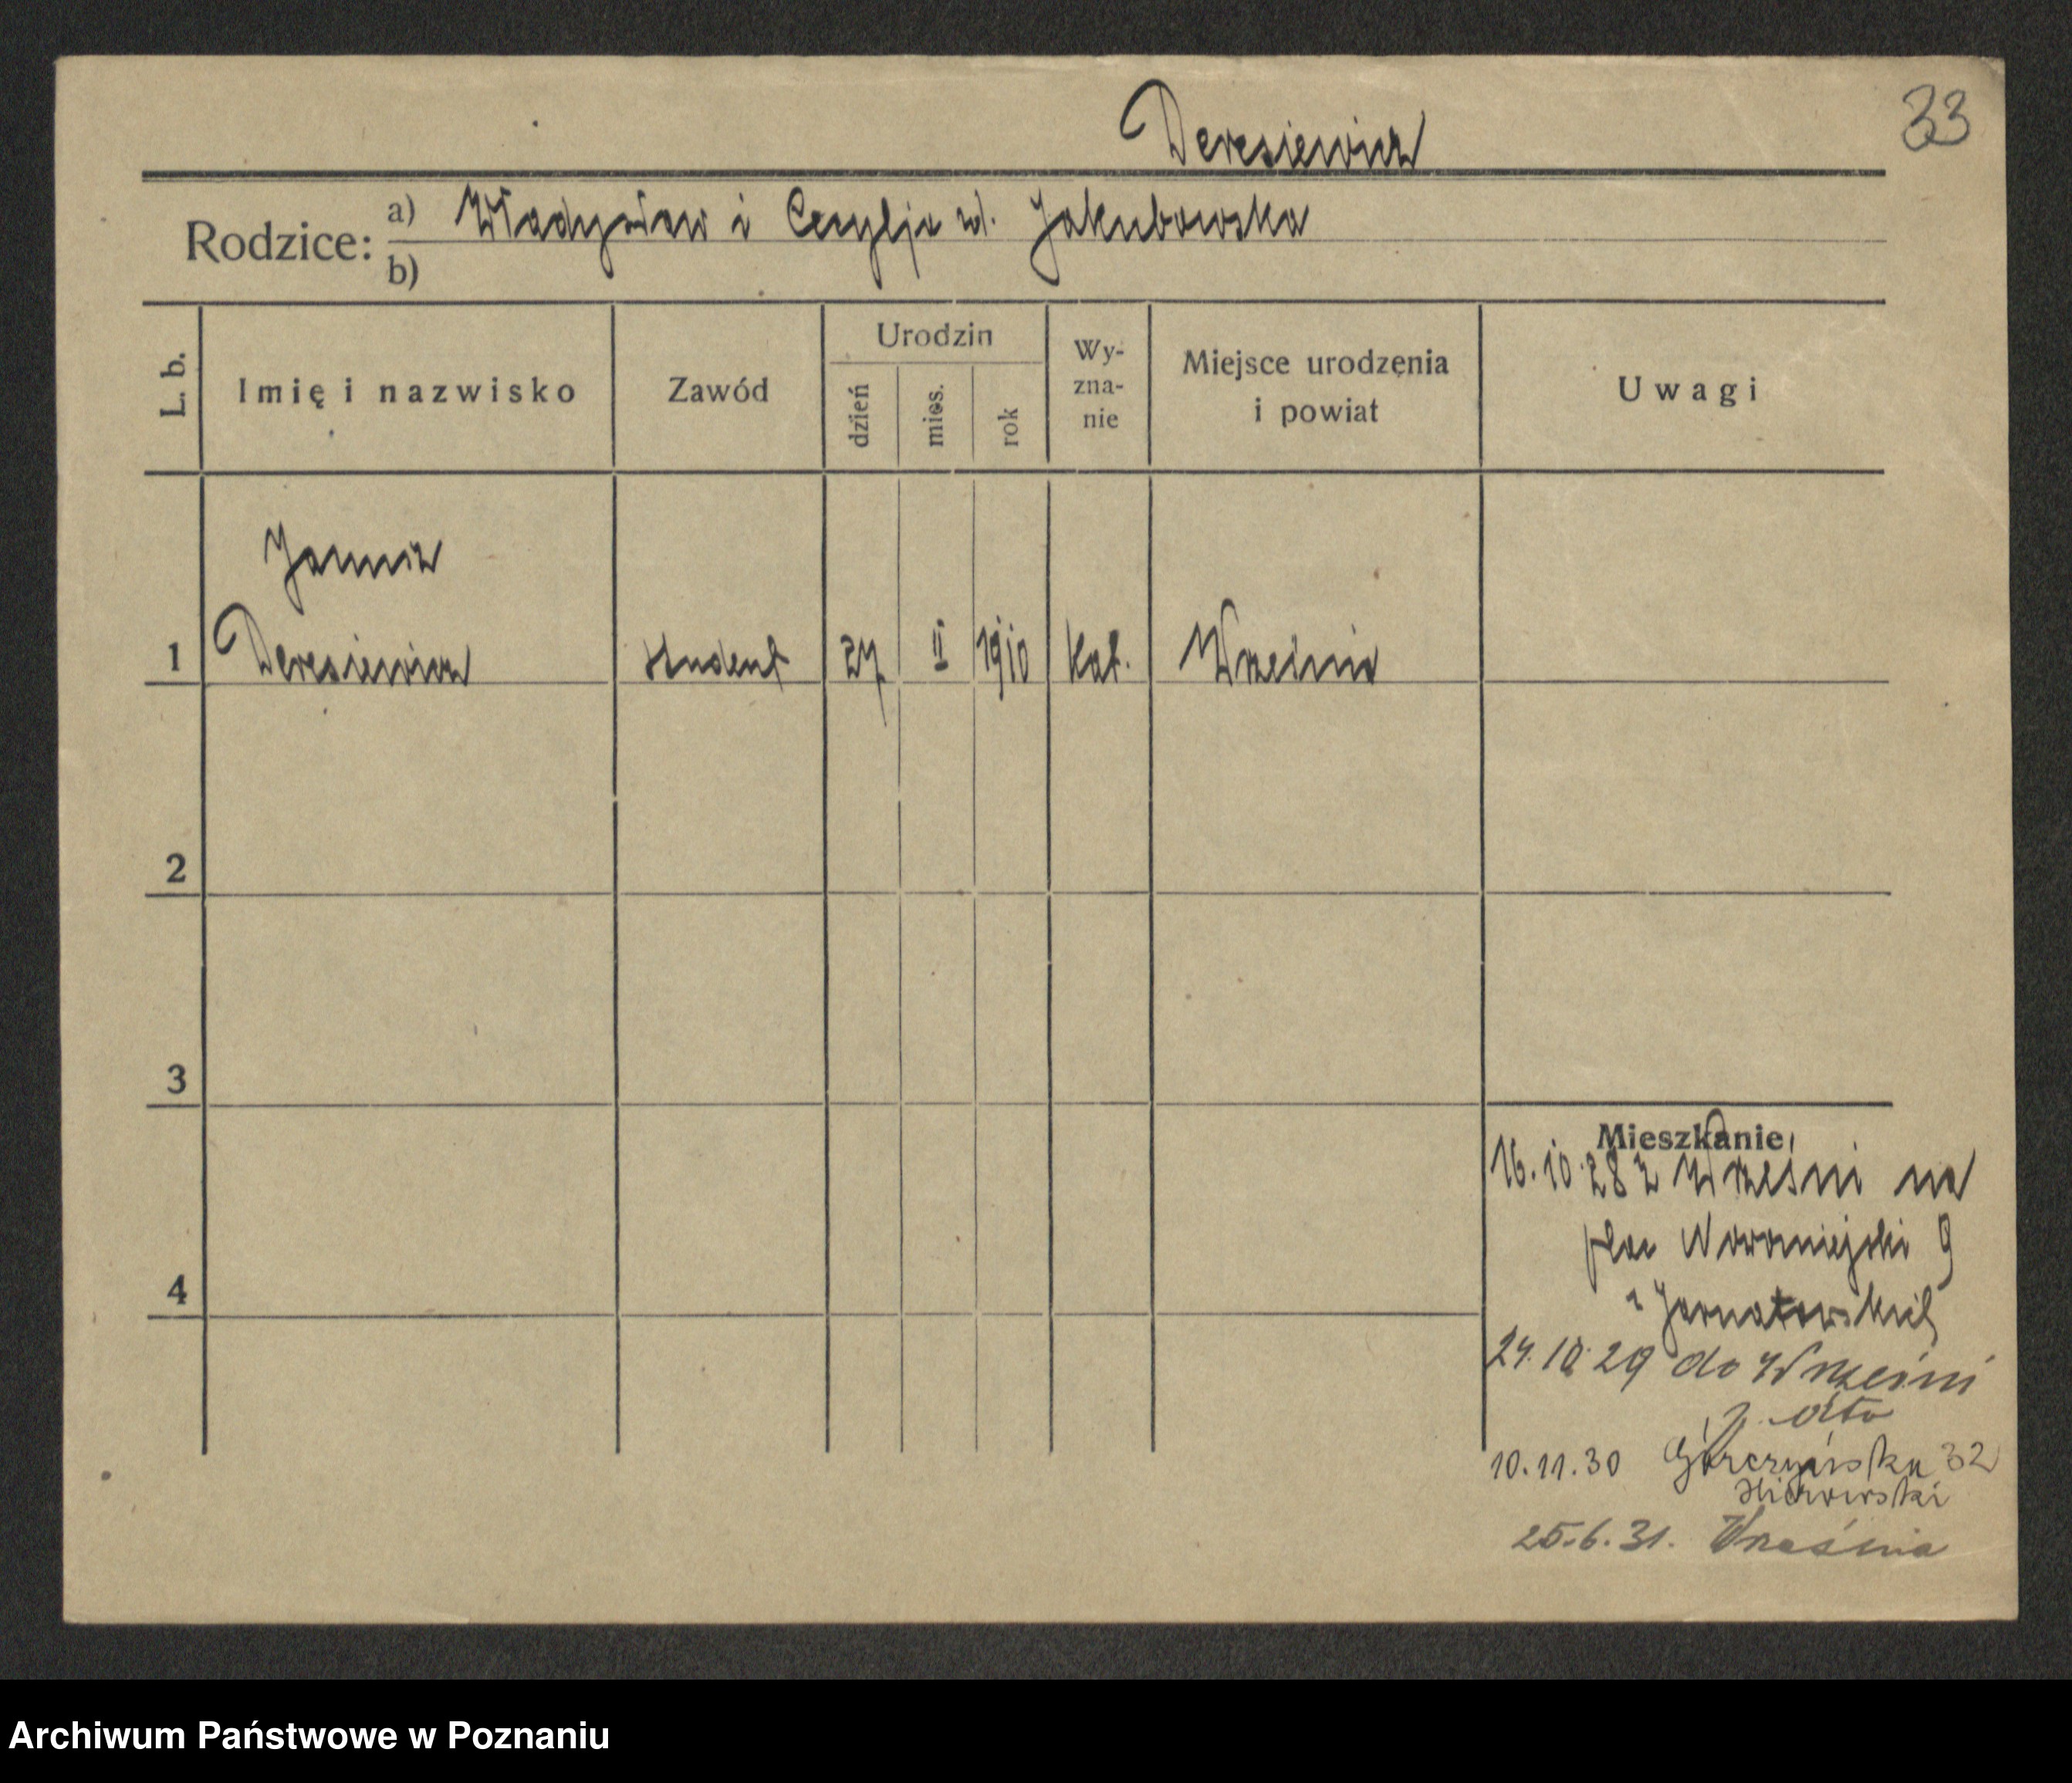 33
Deresiewicz
Rodzice: a) Władysław i Cecylja zd. Jakubowska
b)
L. b. Imię i nazwisko Zawód Urodzin dzień mies. rok Wy-zna-nie Miejsce urodzenia i powiat Uwagi
Janusz
1 Deresiewicz student 27 II 1910 kat. Września
2
3
Mieszkanie
16.10.28 z Wrześni na
plac Nowomiejski 9
4
24.10.29 do Wrześni
10.11.30 Górczyńska 32
25.6.31. Września
Archiwum Państwowe w Poznaniu